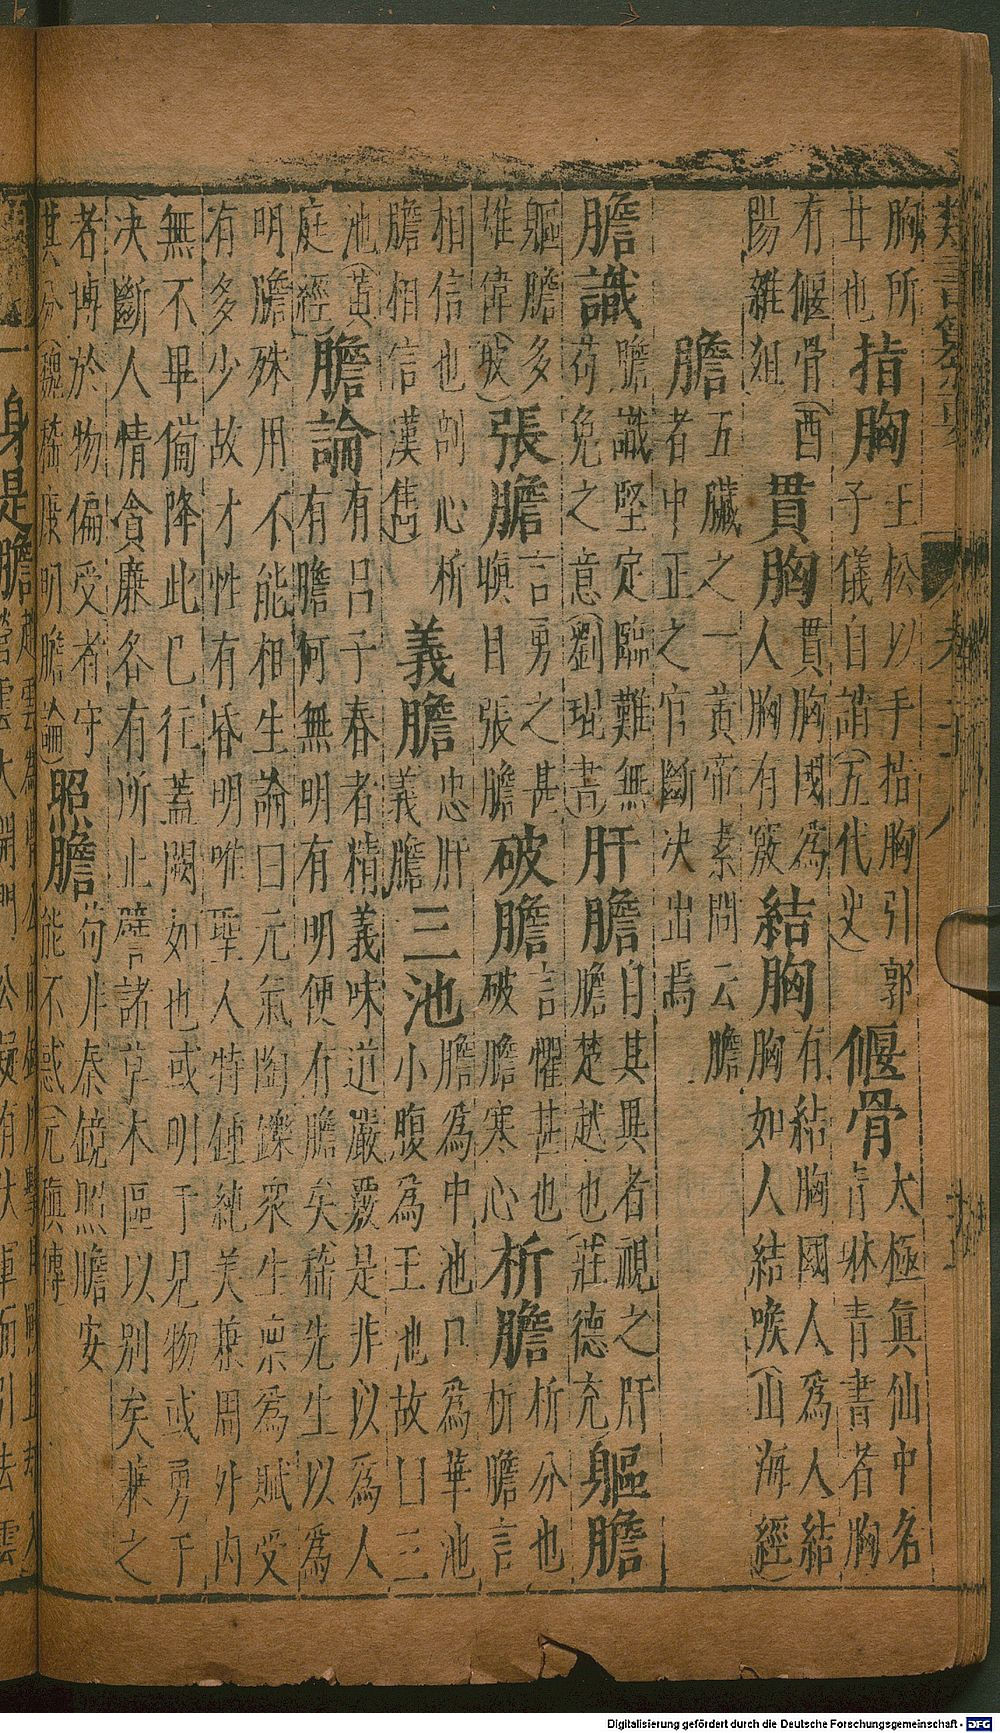 胸所
廿也
指胸
王松以手指胸引郭
子儀自誚(五代史)
偃骨
太極眞仙中名
青牀青書若胸
有偃骨(酉
陽雜俎
貫胸
貫胸國為
人胸有竅
結胸
有結胸國人為人結
胸如人結喉(山海經)
膽
五臟之一黃帝素問云膽
者中正之官斷决出焉
膽識
膽識堅定臨難無
苟免之意(劉琨書)
肝膽
自其異者視之肝
膽楚越也(莊德充
軀膽
軀膽多
雄偉(陂)
張膽
言勇之甚
嗔目張膽
破膽
言懼甚也
破膽寒心
析膽
析分也
析膽言
相信也剖心析
膽相信漢雋
義膽
忠肝
義膽
三池
膽為中池口為華池
小腹為玉池故曰三
池(黃
庭經)
膽論
有呂子春者精義味道嚴覈是非以為人
有膽何無明有明便有膽矣嵇先生以為
明膽殊用不能相生論曰元氣陶鑠衆生稟為賦受
有多少故才性有昏明唯聖人特鍾純美兼周外內
無不畢備降此已往蓋闕如也或明于見物或勇于
决斷人情貪廉各有所止譬諸草木區以別矣兼之
者博於物偏受者守
其分(魏嵇康明膽論)
照膽
苟非秦鏡照膽安
能不惑(元稹傳
一身是膽
Digitalisierung gefördert durch die Deutsche Forschungsgemeinschaft - DFG